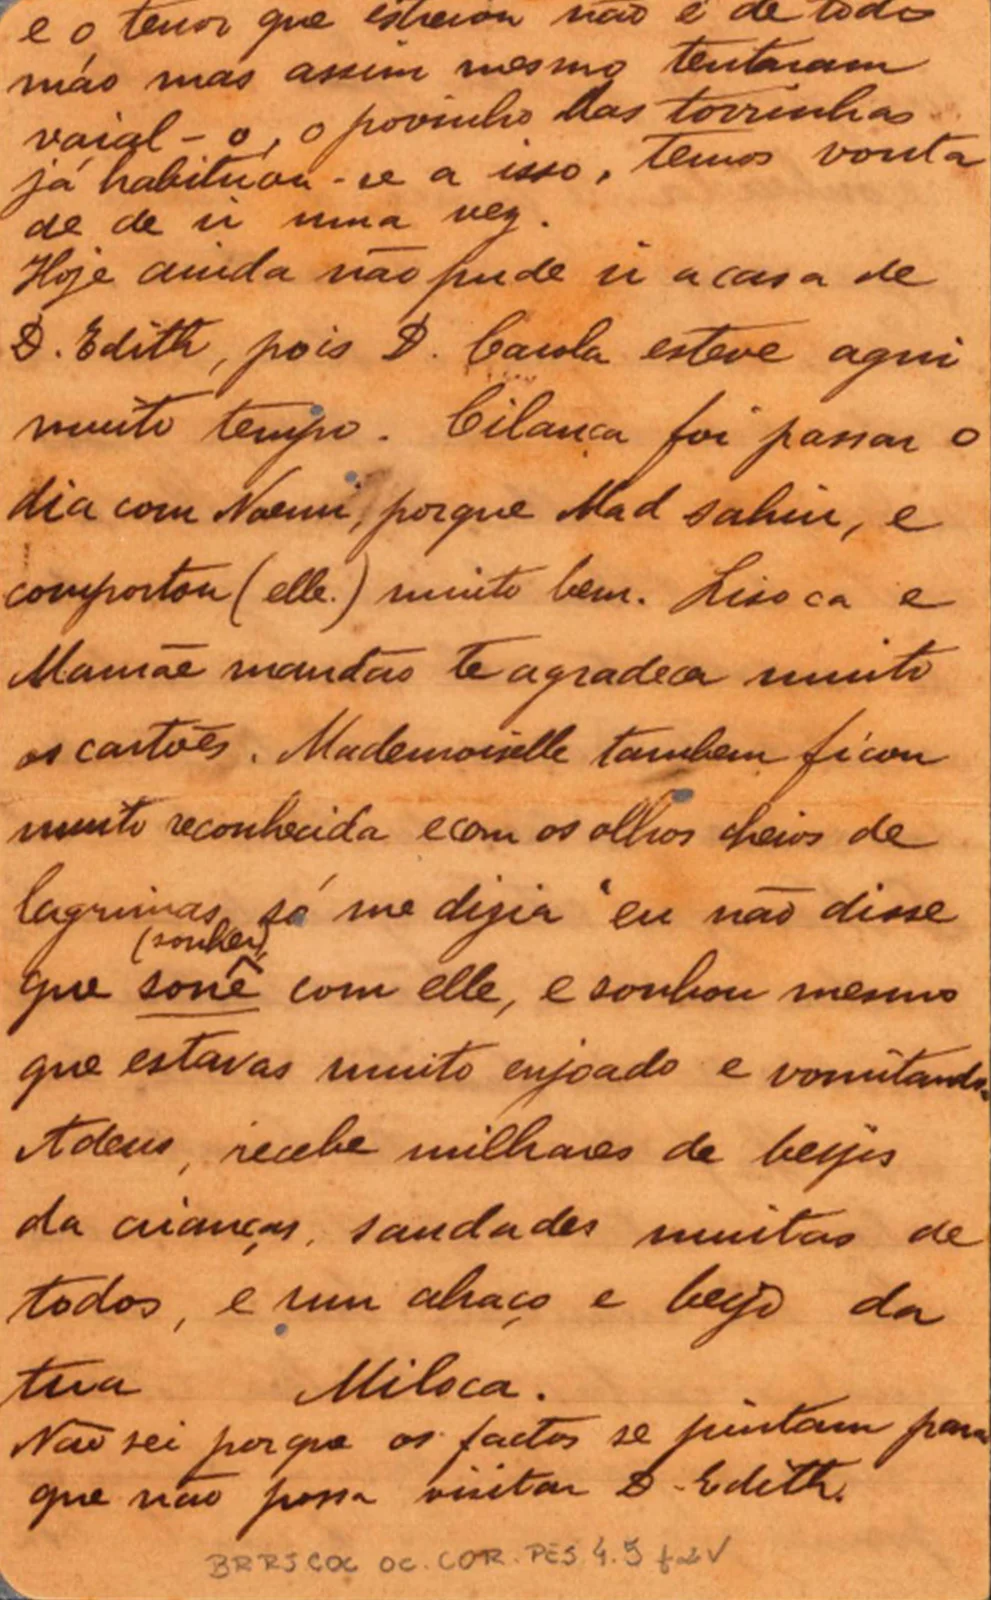 e o tenor que estreiou não é de todo
máo mas assim mesmo tentaram
vaial-o, o povinho das torrinhas
já habituou-se a isso, temos vonta
de de ir uma vez.
Hoje ainda não pude ir a casa de
D. Edith, pois D. Carola esteve aqui
muito tempo. Cilança foi passar o
dia com Noemi, porque Mad sahiu, e
comportou (elle.) muito bem. Lisoca e
Mamãe mandão te agradecer muito
os cartões. Mademoiselle tambem ficou
muito reconhecida e com os olhos cheios de
lagrimas só me dizia "eu não disse
(sonhei)
que sonê com elle, e sonhou mesmo
que estavas muito enjoado e vomitando.
Adeus, recebe milhares de beijos
da crianças, saudades muitas de
todos, e um abraço e beijo da
tua Miloca.
Não sei porque os factos se juntam para
que não possa visitar D. Edith.
BRRJCOC OC.COR.PES.4.5 f2V